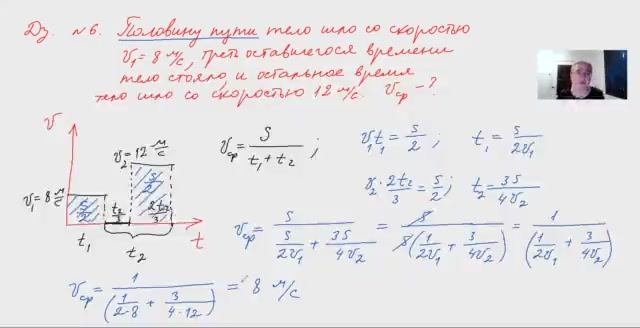 Дз. №6. Половину пути тело шло со скоростью
v₁ = 8 м/с, треть оставшегося времени
тело стояло, и остальное время
тело шло со скоростью 12 м/с. vср - ?
v
v₂ = 12 м/с
v₁ = 8 м/с
S/2
S/2
t₂/3
2t₂/3
t₁
t₂
t
vср = S/(t₁ + t₂) ; v₁t₁ = S/2 ; t₁ = S/(2v₁)
v₂ · 2t₂/3 = S/2 ; t₂ = 3S/(4v₂)
vср = S/(S/(2v₁) + 3S/(4v₂)) = S/(S(1/(2v₁) + 3/(4v₂))) = 1/(1/(2v₁) + 3/(4v₂))
vср = 1/(1/(2·8) + 3/(4·12)) = 8 м/с